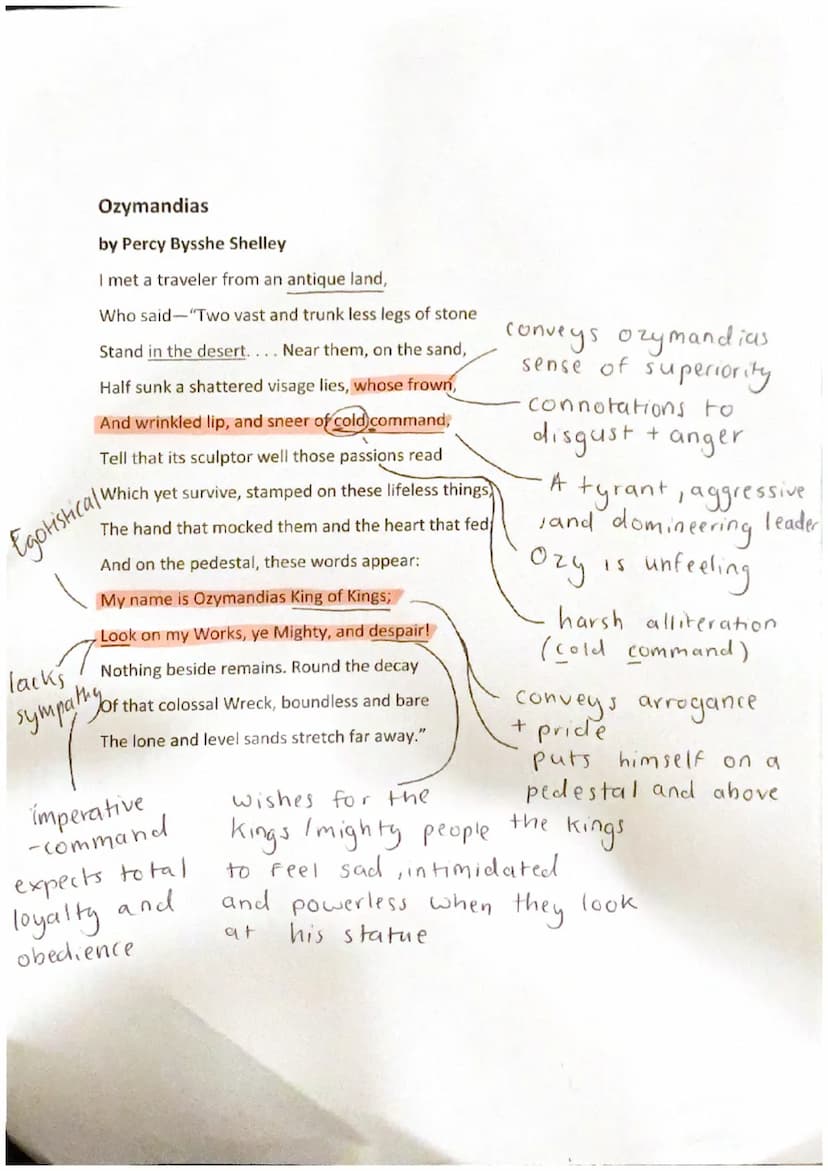 Ozymandias
by Percy Bysshe Shelley
I met a traveler from an antique land,
Who said—“Two vast and trunk less legs of stone
Stand in the desert. . . . Near them, on the sand,
Half sunk a shattered visage lies, whose frown,
And wrinkled lip, and sneer of cold command,
Tell that its sculptor well those passions read
Which yet survive, stamped on these lifeless things,
The hand that mocked them and the heart that fed
And on the pedestal, these words appear:
My name is Ozymandias King of Kings;
Look on my Works, ye Mighty, and despair!
Nothing beside remains. Round the decay
Of that colossal Wreck, boundless and bare
The lone and level sands stretch far away.”
conveys ozymandias
sense of superiority
connotations to
disgust + anger
A tyrant, aggressive
, and domineering leader
Ozy is unfeeling
harsh alliteration
(cold command)
conveys arrogance
+ pride
puts himself on a
pedestal and above
the kings
Egotistical
lacks
sympathy
imperative
-command
expects total
loyalty and
obedience
wishes for the
kings/mighty people
to feel sad, intimidated
and powerless when they look
at his statue